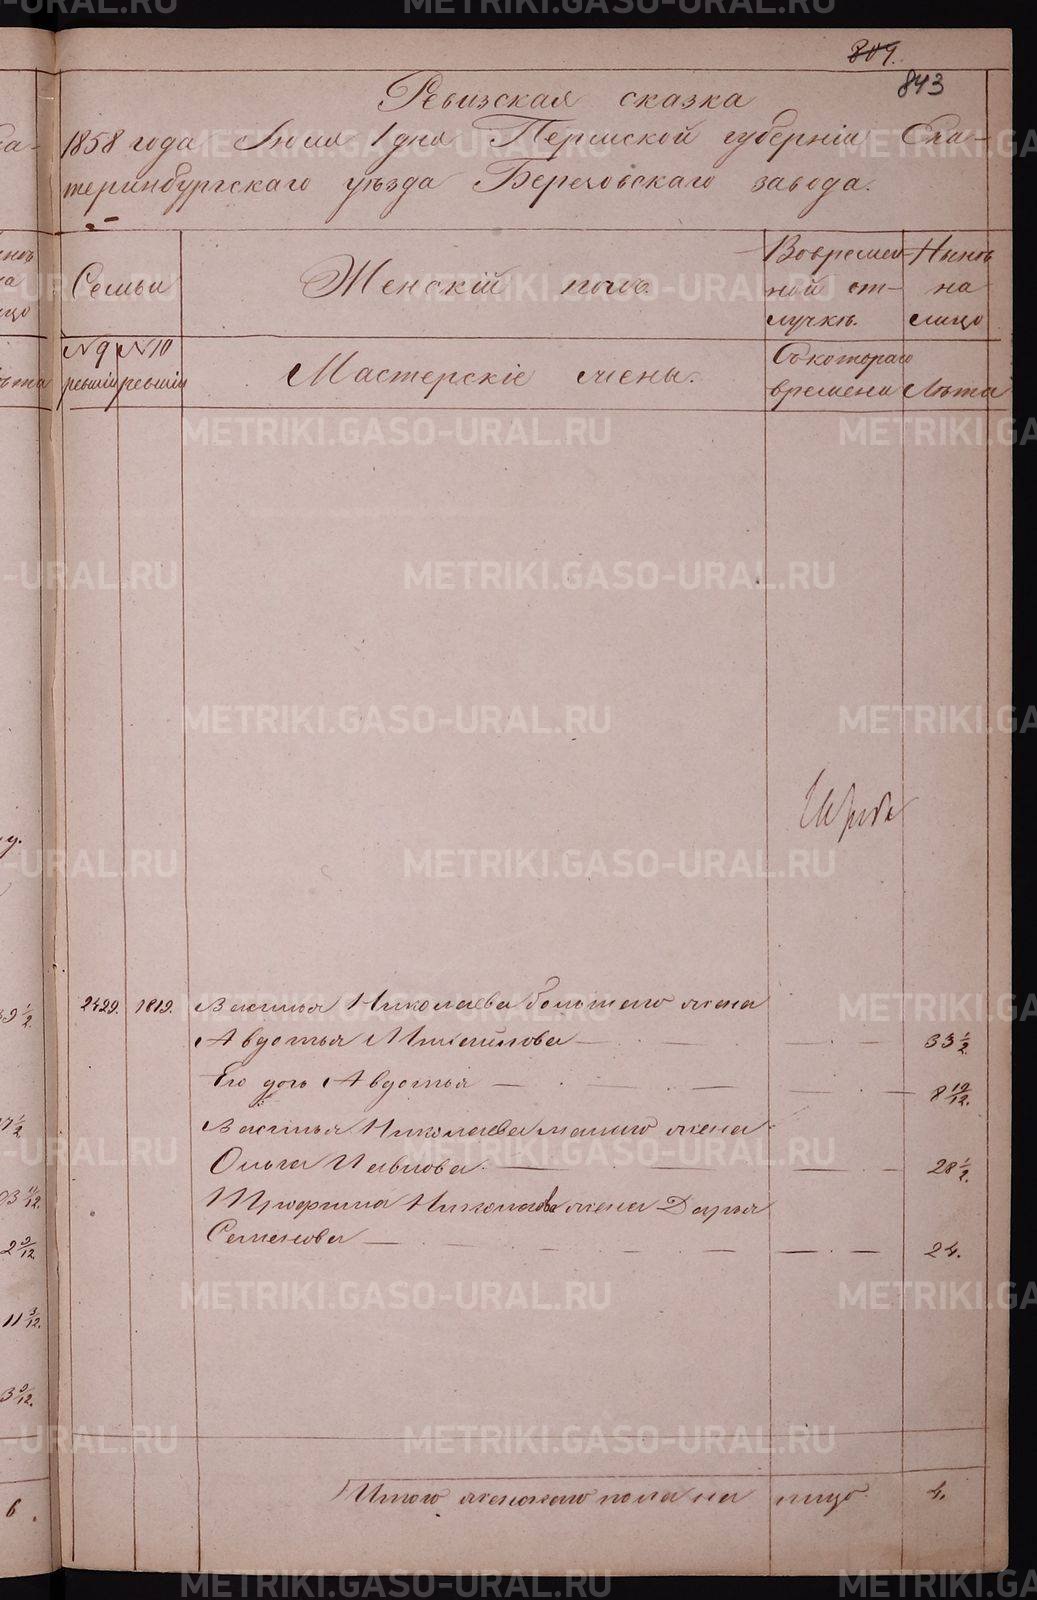 METRIKI.GASO-URAL.RU
809.
843
Ревизская сказка
1858 года Июля 1 дня Пермской губерніи Ека-
теринбургскаго уѣзда Березовскаго завода.
Семьи
Женскій полъ
Во времен-
ной от-
лучкѣ.
Нынѣ
на
лицо
№ 9 ревизіи
№ 10 ревизіи
Мастерскіе члены.
Съ котораго
времени
Лѣта
2429. 1819. Василья Николаева большаго жена
Авдотья Михайлова — 33 1/2
Его дочь Авдотья — 8 10/12.
Василья Николаева малаго жена
Ольга Павлова — 28 1/2.
Трофима Николаева жена Дарья
Семенова — 24.
Итого женскаго пола на лицо 4.
39 1/2.
7 1/2
03 11/12.
2 9/12
11 3/12.
3 9/12.
6.